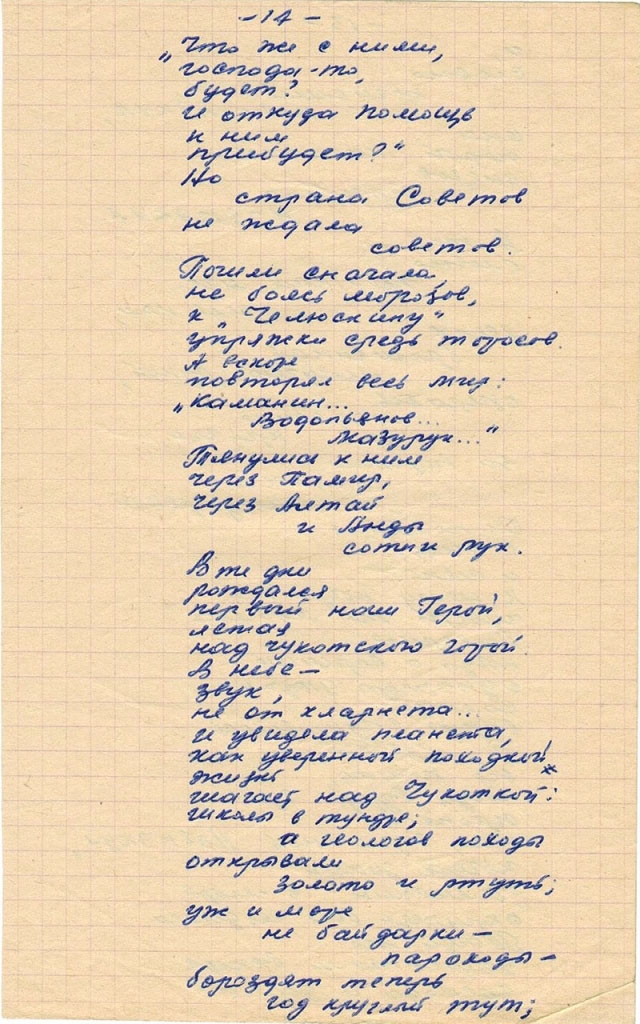 -14-
„Что же с ними,
господа-то,
будет?
И откуда помощь
к ним
прибудет?“
Но
страна Советов
не ждала
советов.
Пошли сначала,
не боясь морозов,
к „Челюскину“
упряжки средь торосов.
А вскоре
повторял весь мир:
„Каманин...
Водопьянов...
Мазурук...“
Тянулись к ним
через Памир,
через Алтай
и Анды
сотни рук.
В те дни
рождался
первый наш Герой,
летая
над чукотского горой.
В небе —
звук,
не от кларнета...
И увидела планета,
как уверенной походкой
жизнь
шагает над Чукоткой:
школы в тундре;
а геологов походы
открывали
золото и ртуть;
уж и море
не байдарки —
пароходы —
бороздят теперь
год круглый тут;